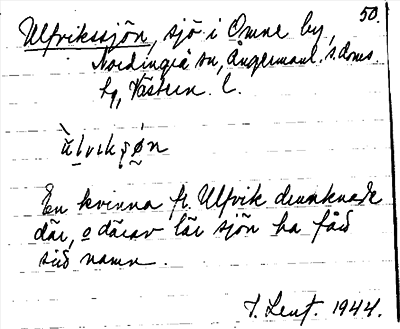 50.
Ulfrikssjön, sjö i Omne by,
Nordingrå sn, Ångermanl. s. doms.
hg, Västern. l.
En kvinna fr. Ulfvik drunknade
där, o därav lär sjön ha fått
sitt namn.
1944.